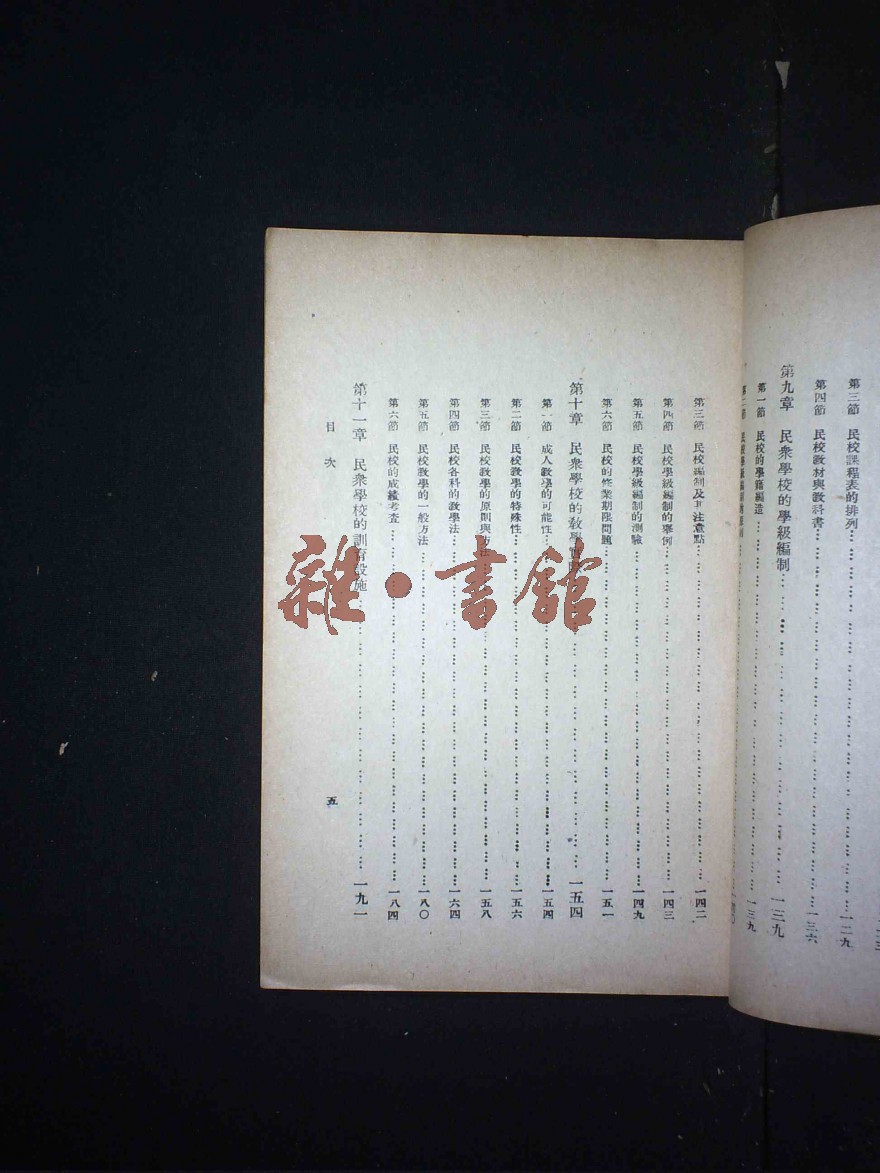 第三節　民校課程表的排列……一二九
第四節　民校教材與教科書……一三六
第九章　民衆學校的學級編制……一三九
第一節　民校的學籍編造……一三九
第二節　民校學級編制
第三節　民校編制及其注意點……一四二
第四節　民校學級編制的舉例……一四三
第五節　民校學級編制的測驗……一四九
第六節　民校的修業期限問題……一五一
第十章　民衆學校的教學……一五四
第一節　成人教學的可能性……一五四
第二節　民校教學的特殊性……一五六
第三節　民校教學的原則與方法……一五八
第四節　民校各科的教學法……一六四
第五節　民校教學的一般方法……一八〇
第六節　民校的成績考查……一八四
第十一章　民衆學校的訓育設施……一九一
目次
五
雜·書館